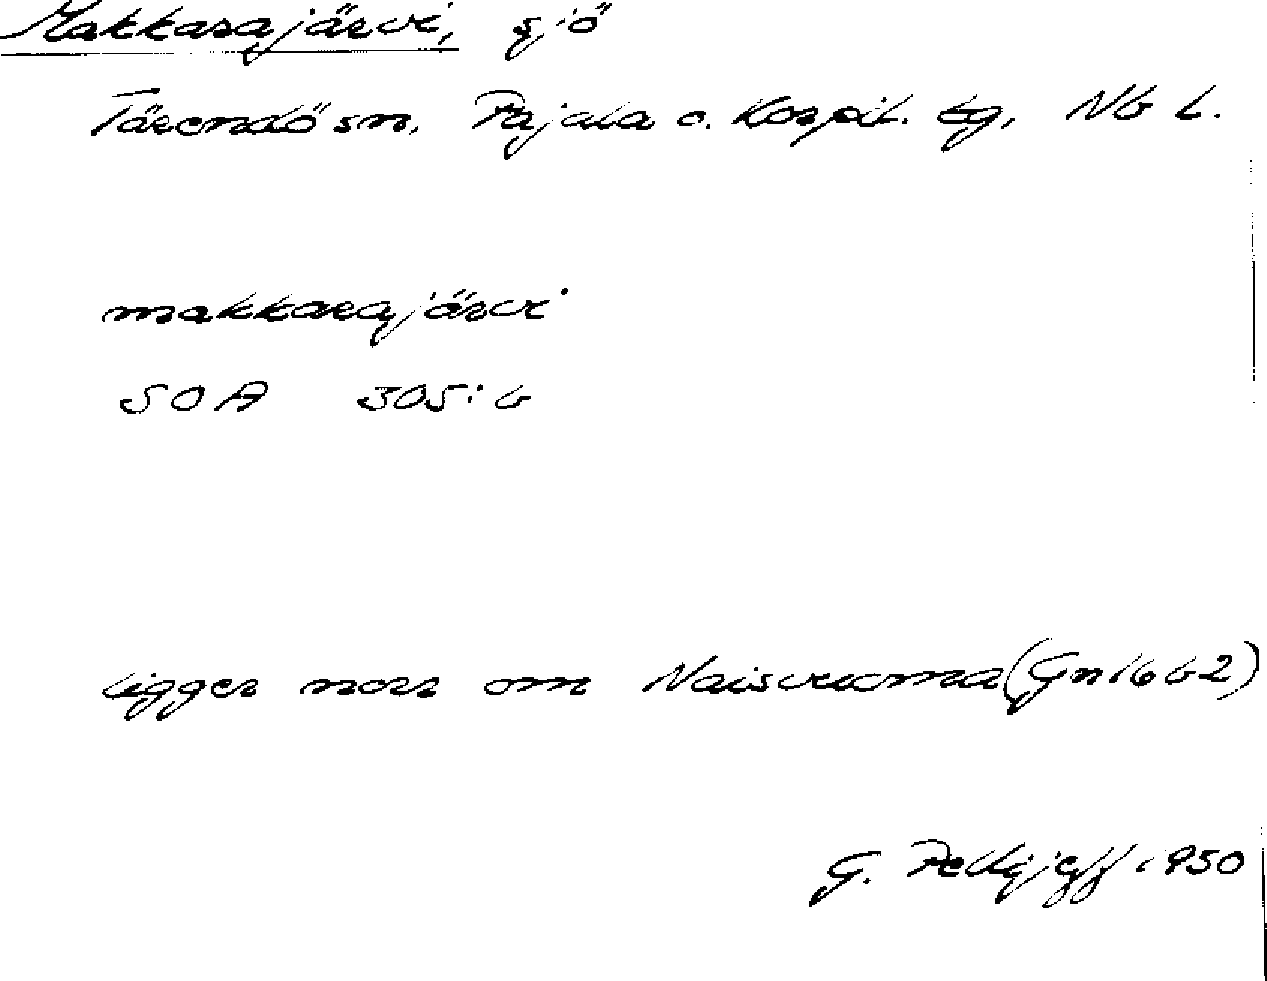 Makkarajärvi, sjö
Tärendö sn. Pajala o. Korpil. tg, Nb L.
makkarajärvi
SOA 305: b
ligger norr om Naisvuoma (Gn16b2)
G. Pellijeff 1950